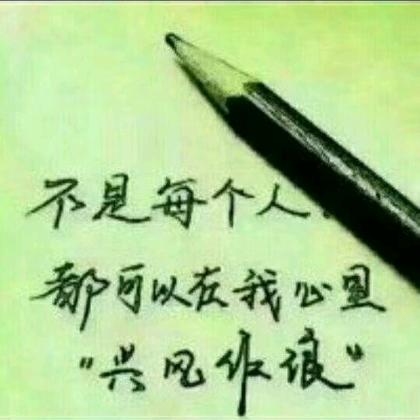 不是每个人,
都可以在我心里
"兴风作浪"